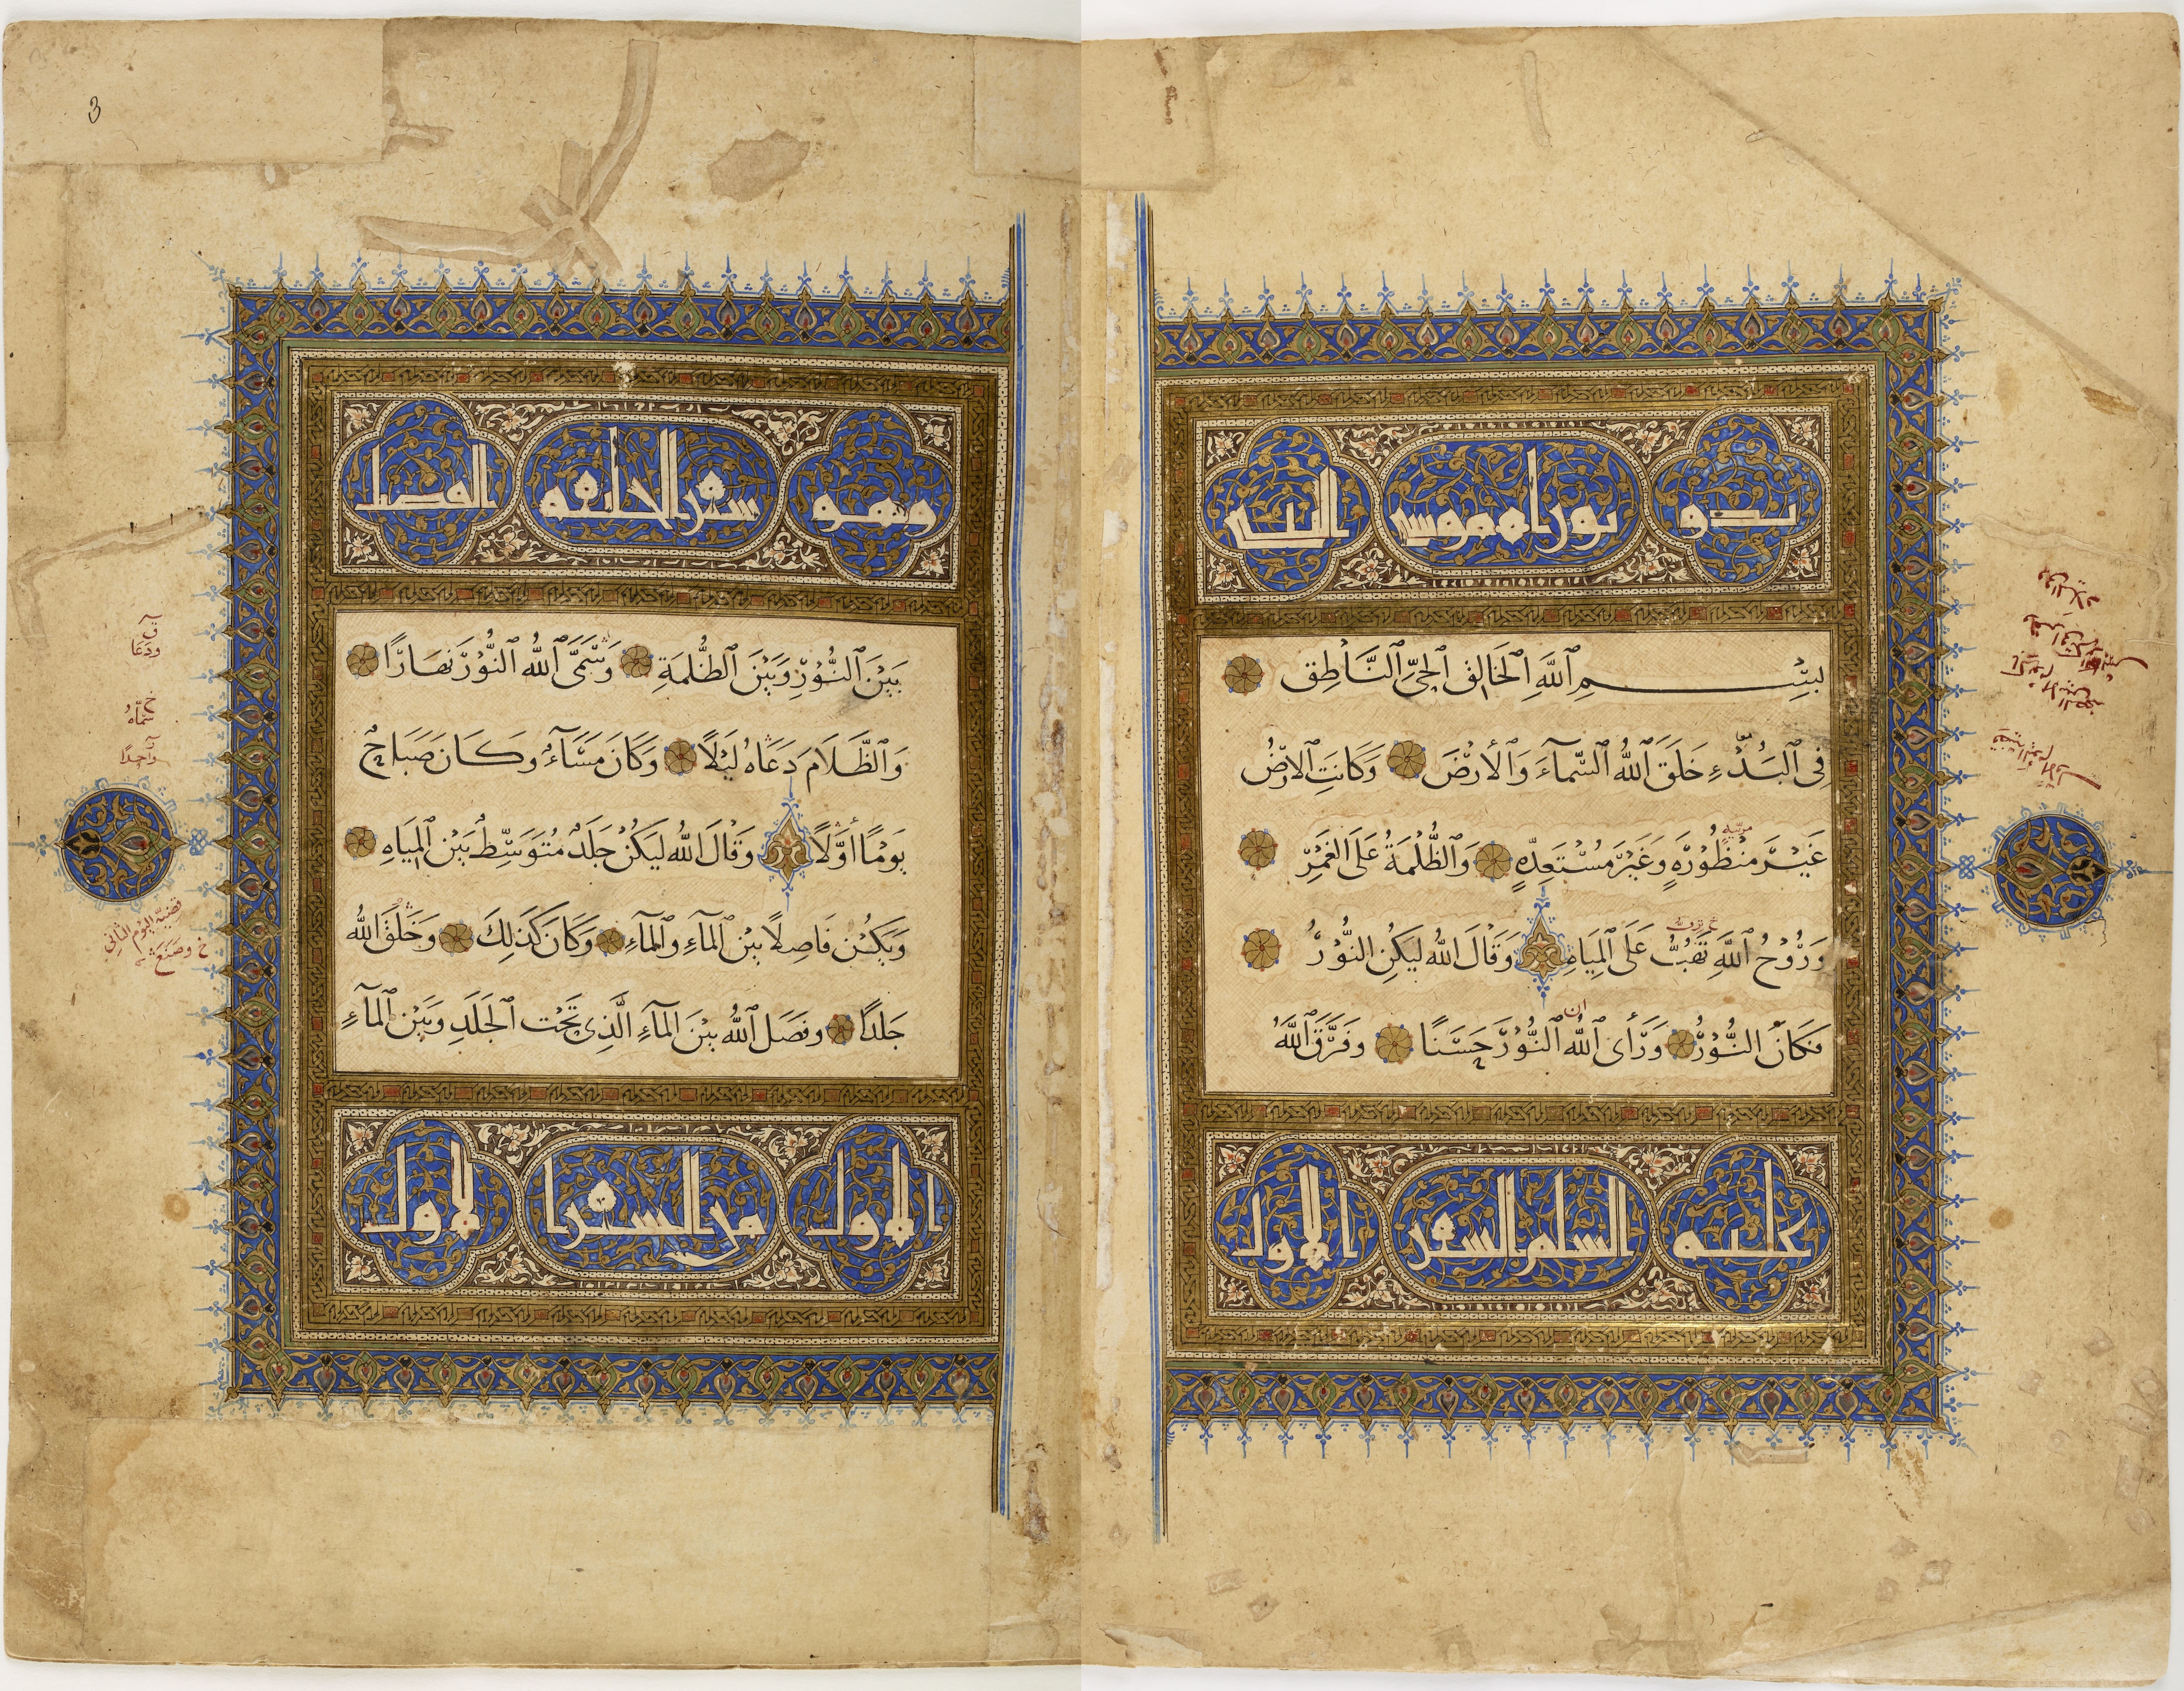 بدو توراه موسى النبي
بِسْمِ ٱللَّهِ ٱلْخَالِقِ ٱلْحَيِّ ٱلنَّاطِقِ
فِي ٱلْبَدْءِ خَلَقَ ٱللَّهُ ٱلسَّمَآءَ وَٱلْأَرْضَ وَكَانَتِ ٱلْأَرْضُ
غَيْرَ مَنْظُورَةٍ وَغَيْرَ مُسْتَعِدَّةٍ وَٱلظُّلْمَةُ عَلَى ٱلْغَمْرِ
وَرُوْحُ ٱللَّهِ تَهُبُّ عَلَى ٱلْمِيَاهِ وَقَالَ ٱللَّهُ لِيَكُنِ ٱلنُّوْرُ
فَكَانَ ٱلنُّوْرُ وَرَأَى ٱللَّهُ ٱلنُّوْرَ حَسَنًا وَفَرَّقَ ٱللَّهُ
عليه السلم السفر الاول
وهو سفر الخليقه
بَيْنَ ٱلنُّوْرِ وَبَيْنَ ٱلظُّلْمَةِ وَسَمَّى ٱللَّهُ ٱلنُّوْرَ نَهَارًا
وَٱلظَّلَامَ دَعَاهُ لَيْلًا وَكَانَ مَسَآءٌ وَكَانَ صَبَاحٌ
يَوْمًا أَوَّلًا وَقَالَ ٱللَّهُ لِيَكُنْ جَلَدٌ مُتَوَسِّطٌ بَيْنَ ٱلْمِيَاهِ
وَيَكُنْ فَاصِلًا بَيْنَ ٱلْمَآءِ وَٱلْمَآءِ وَكَانَ كَذَلِكَ وَخَلَقَ ٱللَّهُ
جَلَدًا وَفَصَلَ ٱللَّهُ بَيْنَ ٱلْمَآءِ ٱلَّذِي تَحْتَ ٱلْجَلَدِ وَبَيْنَ ٱلْمَآءِ
الاول من السفر الاول
ودعا
سماه
واحدًا
قضية اليوم الثاني
وصنع
3